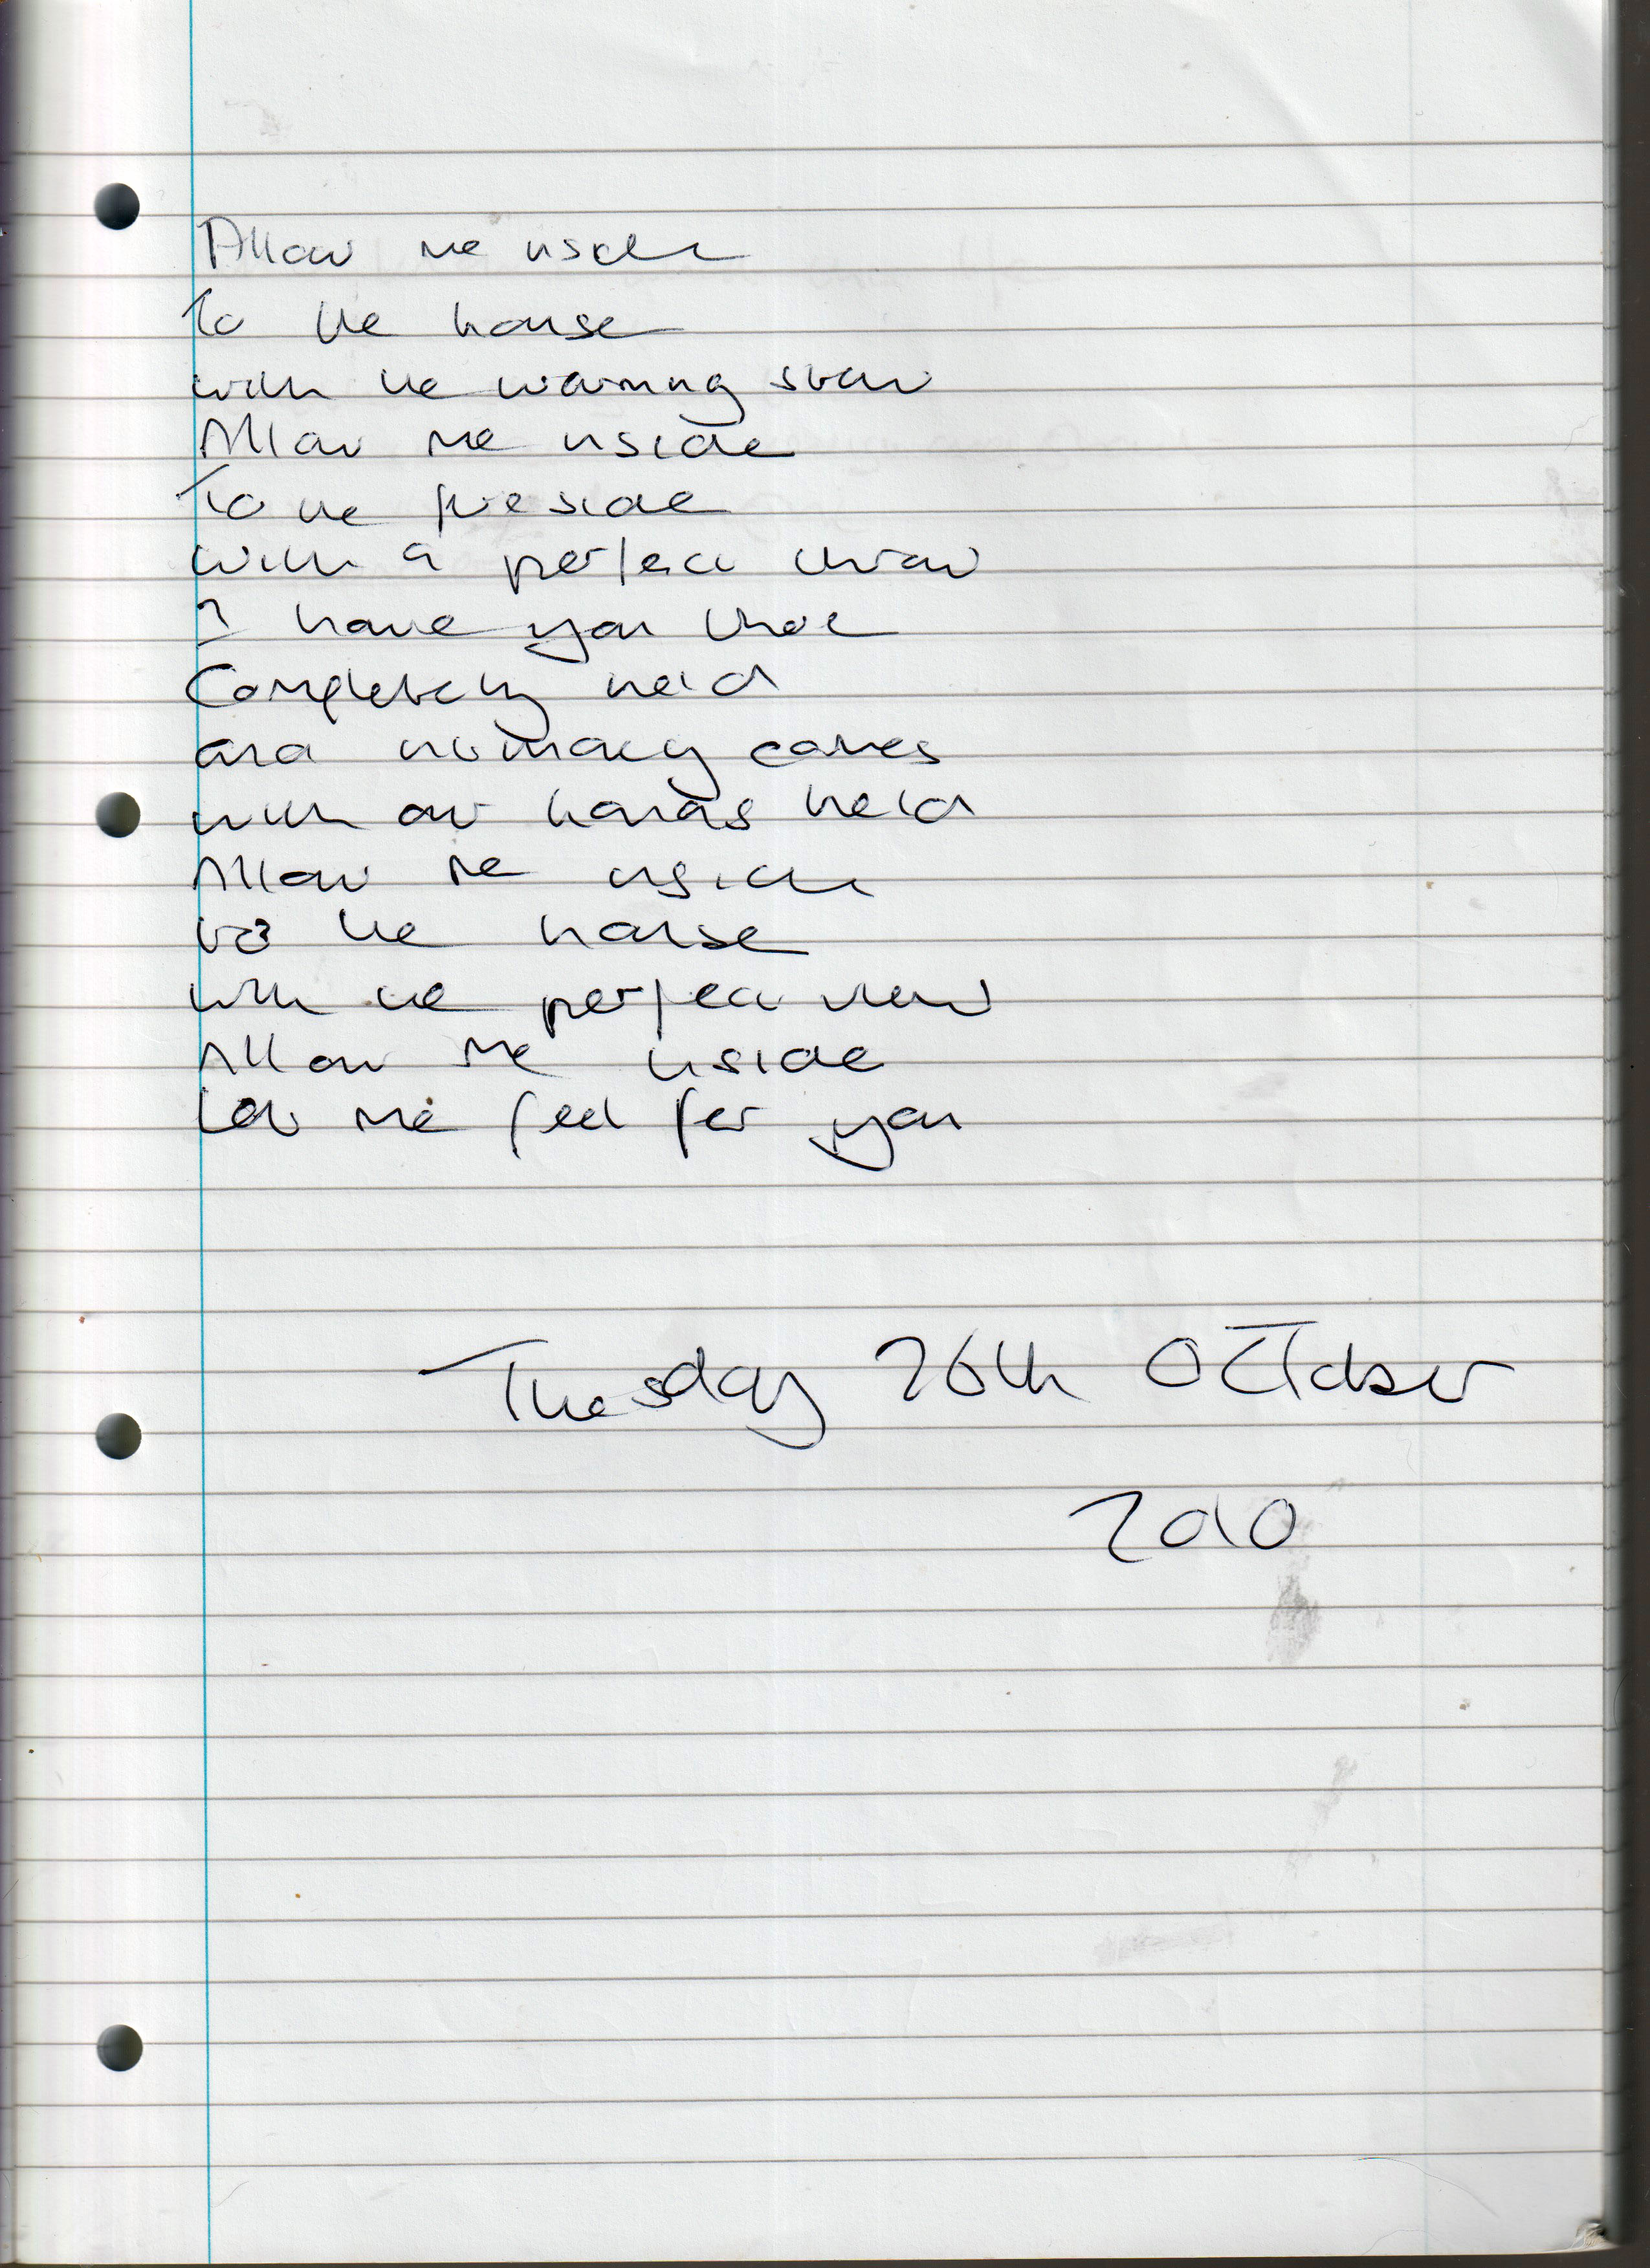 Allow me inside
To the house
with the warning
Allow me inside
To the fireside
with a perfect throw
I have you there
Completely held
and intimacy comes
with our hands held
Allow me inside
to the house
with the perfect view
Allow me inside
Let me feel for you
Tuesday 26th October
2010